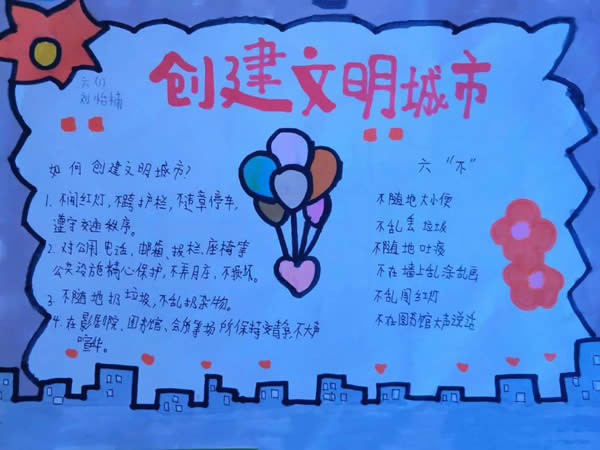 创建文明城市
六(1)
刘怡楠
如何创建文明城市?
1. 不闯红灯,不跨护栏,不违章停车,
遵守交通秩序。
2. 对公用电话、邮箱、报栏、座椅等
公共设施精心保护,不弄脏,不损坏。
3. 不随地扔垃圾,不乱扔杂物。
4. 在影剧院、图书馆、会所等场所保持安静,不大声
喧哗。
六“不”
不随地大小便
不乱丢垃圾
不随地吐痰
不在墙上乱涂乱画
不乱闯红灯
不在图书馆大声说话